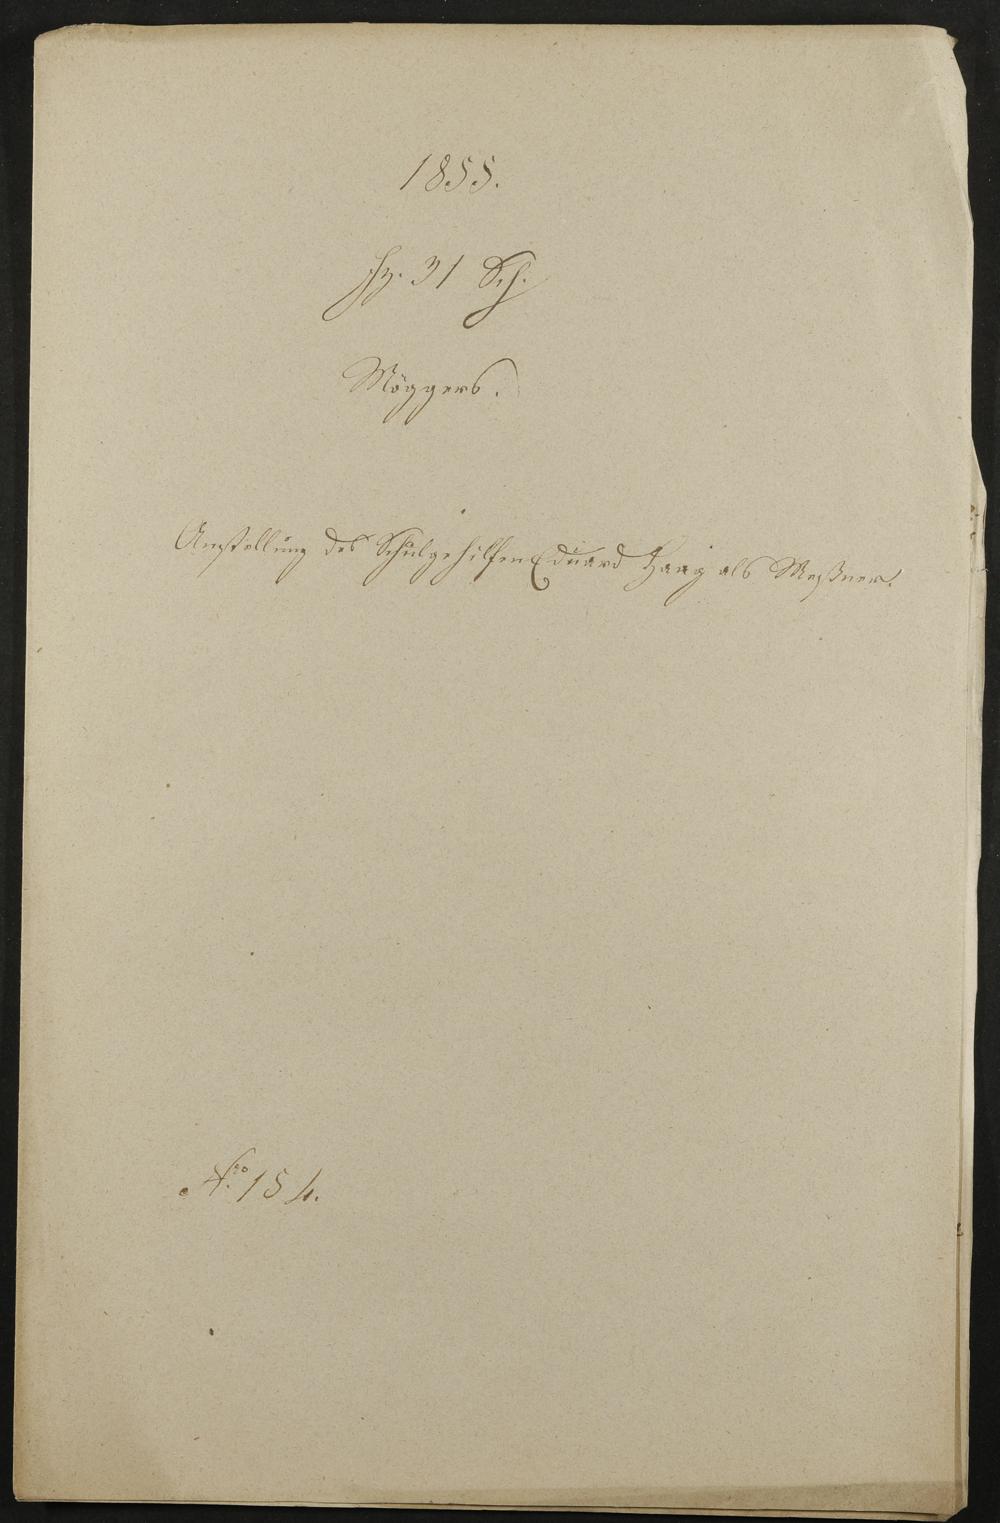 1855.
Fz. 31 Sch.
Möggers.
Anstellung des Schulgehilfen Eduard Haag als Meßner.
Nro 154.